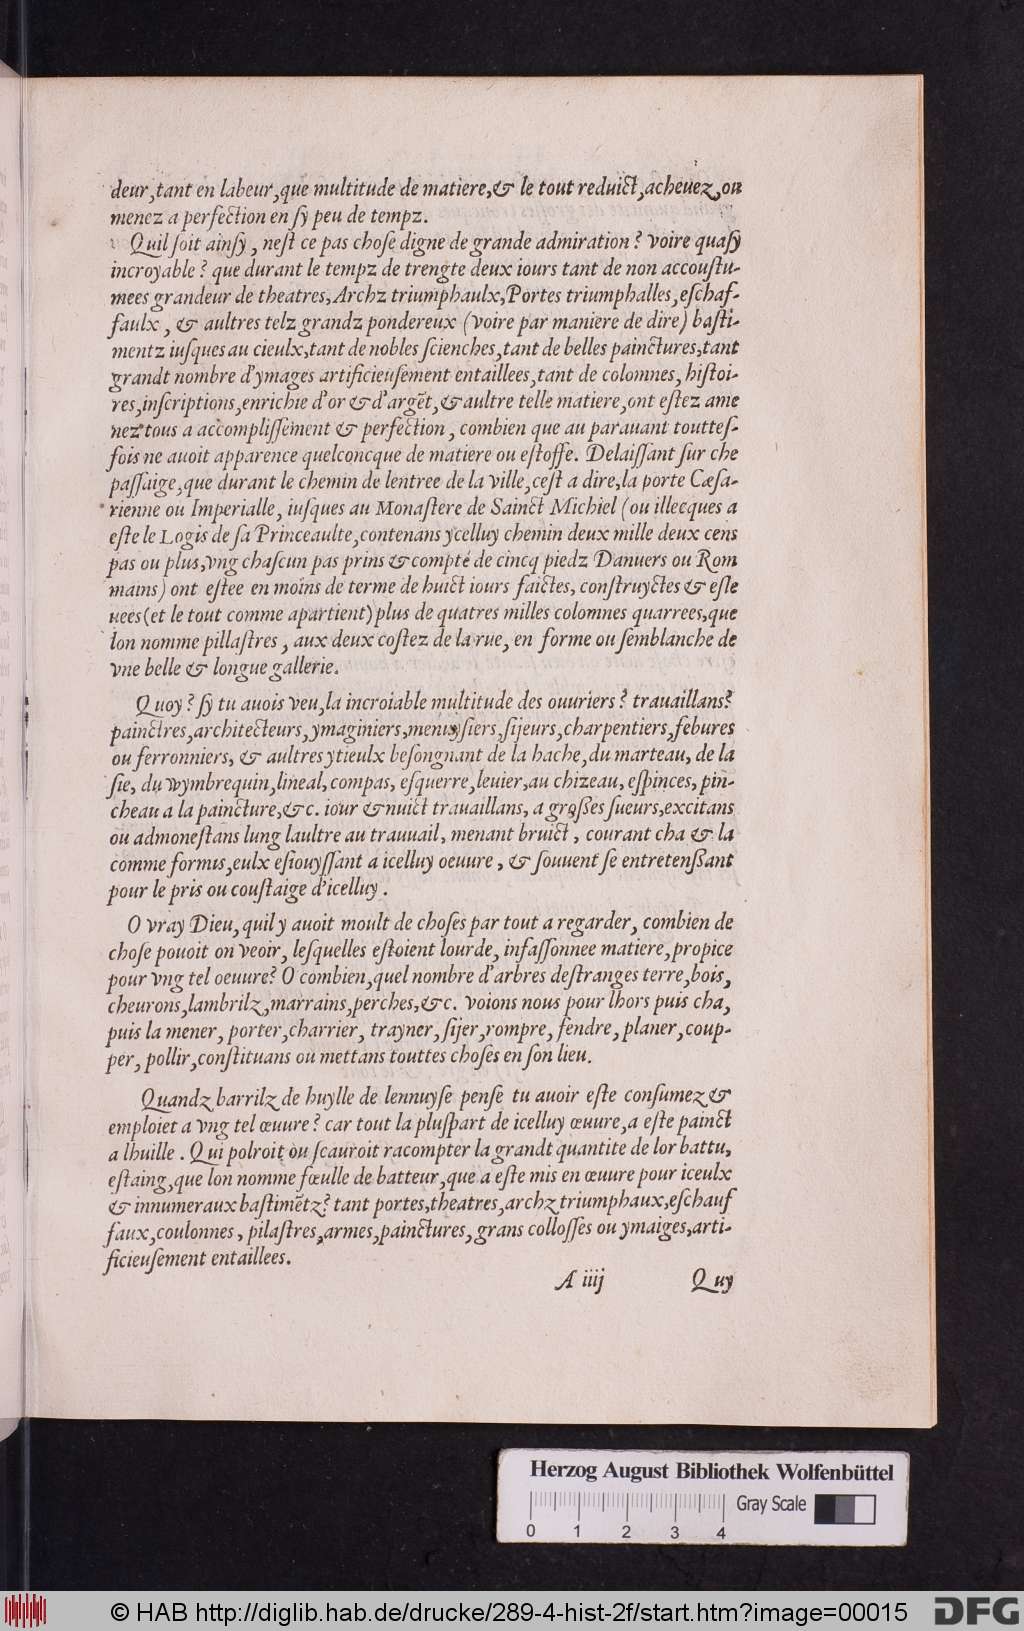 deur, tant en labeur, que multitude de matiere, & le tout reduict, acheuez, ou
menez a perfection en ſy peu de tempz.
Quil ſoit ainſy, neſt ce pas choſe digne de grande admiration? voire quaſy
incroyable? que durant le tempz de trengte deux iours tant de non accouſtu-
mees grandeur de theatres, Archz triumphaulx, Portes triumphalles, eſchaf-
faulx, & aultres telz grandz pondereux (voire par maniere de dire) baſti-
mentz iuſques au cieulx, tant de nobles ſcienches, tant de belles painctures, tant
grandt nombre d'ymages artificieuſement entaillees, tant de colomnes, hiſtoi-
res, inſcriptions, enrichie d'or & d'argēt, & aultre telle matiere, ont eſtez ame
nez tous a accompliſſement & perfection, combien que au parauant touttes-
fois ne auoit apparence quelconcque de matiere ou eſtoffe. Delaiſſant ſur che
paſſaige, que durant le chemin de lentree de la ville, ceſt a dire, la porte Cæſa-
rienne ou Imperialle, iuſques au Monaſtere de Sainct Michiel (ou illecques a
eſte le Logis de ſa Princeaulte, contenans ycelluy chemin deux mille deux cens
pas ou plus, vng chaſcun pas prins & compté de cincq piedz Danuers ou Rom
mains) ont eſtee en moins de terme de huict iours faictes, conſtruyctes & eſle
uees (et le tout comme apartient) plus de quatres milles colomnes quarrees, que
lon nomme pillaſtres, aux deux coſtez de la rue, en forme ou ſemblanche de
vne belle & longue gallerie.
Quoy? ſy tu auois veu, la incroiable multitude des ouuriers? trauaillans?
painctres, architecteurs, ymaginiers, menuyſiers, ſijeurs, charpentiers, febures
ou ferronniers, & aultres ytieulx beſongnant de la hache, du marteau, de la
ſie, du wymbrequin, lineal, compas, eſquerre, leuier, au chizeau, eſpinces, pin-
cheau a la paincture, &c. iour & nuict trauaillans, a großes ſueurs, excitans
ou admoneſtans lung laultre au trauuail, menant bruict, courant cha & la
comme formis, eulx eſiouyſſant a icelluy oeuure, & ſouuent ſe entretenßant
pour le pris ou couſtaige d'icelluy.
O vray Dieu, quil y auoit moult de choſes par tout a regarder, combien de
choſe pouoit on veoir, leſquelles eſtoient lourde, infaſſonnee matiere, propice
pour vng tel oeuure? O combien, quel nombre d'arbres deſtranges terre, bois,
cheurons, lambrilz, marrains, perches, &c. voions nous pour lhors puis cha,
puis la mener, porter, charrier, trayner, ſijer, rompre, fendre, planer, coup-
per, pollir, conſtituans ou mettans touttes choſes en ſon lieu.
Quandz barrilz de huylle de lennuyſe penſe tu auoir eſte conſumez &
emploiet a vng tel œuure? car tout la pluſpart de icelluy œuure, a eſte painct
a lhuille. Qui polroit ou ſcauroit racompter la grandt quantite de lor battu,
eſtaing, que lon nomme fœulle de batteur, que a eſte mis en œuure pour iceulx
& innumeraux baſtimētz? tant portes, theatres, archz triumphaux, eſchauf
faux, coulonnes, pilaſtres, armes, painctures, grans colloſſes ou ymaiges, arti-
ficieuſement entaillees.
A iiij Quy
Herzog August Bibliothek Wolfenbüttel
Gray Scale
0 1 2 3 4
© HAB http://diglib.hab.de/drucke/289-4-hist-2f/start.htm?image=00015 DFG